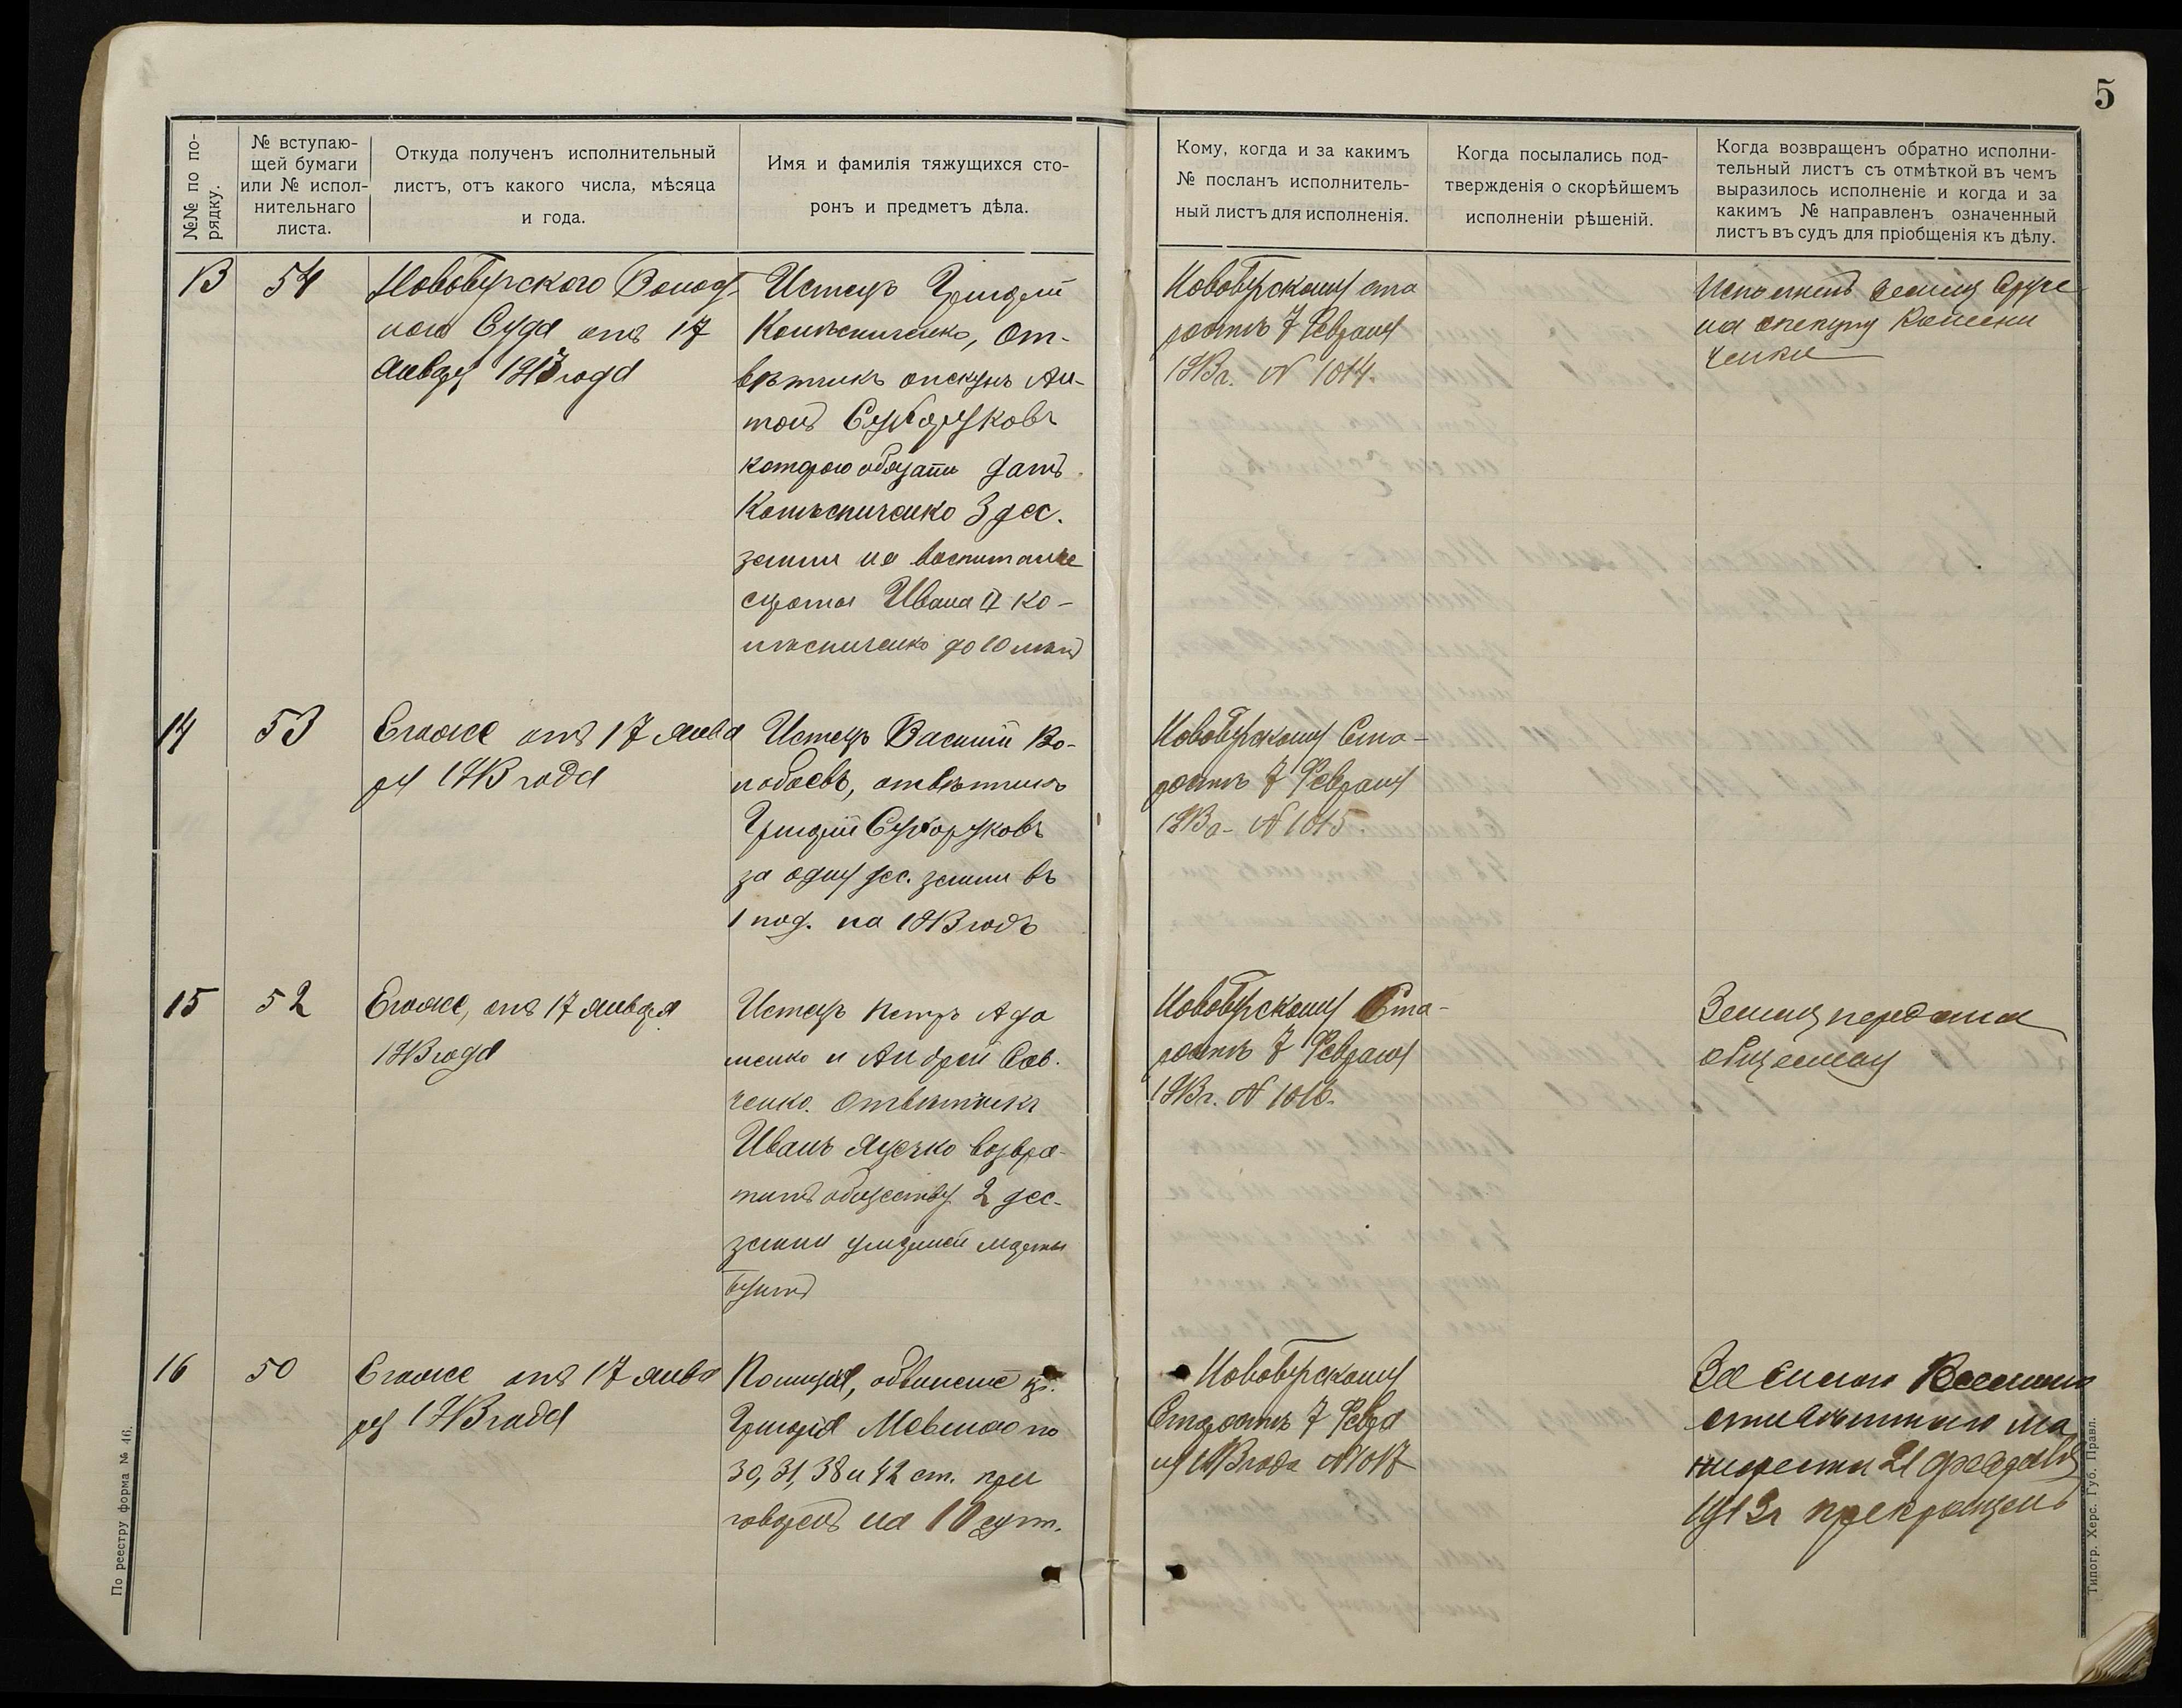 5
№№ по по-
рядку.
№ вступаю-
щей бумаги
или № испол-
нительнаго
листа.
Откуда полученъ исполнительный
листъ, отъ какого числа, мѣсяца
и года.
Имя и фамилія тяжущихся сто-
ронъ и предметъ дѣла.
Кому, когда и за какимъ
№ посланъ исполнитель-
ный листъ для исполненія.
Когда посылались под-
твержденія о скорѣйшемъ
исполненіи рѣшеній.
Когда возвращенъ обратно исполни-
тельный листъ съ отмѣткой въ чемъ
выразилось исполненіе и когда и за
какимъ № направленъ означенный
листъ въ судъ для пріобщенія къ дѣлу.
13
54
Новобугского Волост
ного Суда отъ 17
Января 1913 года
Истецъ Григорій
Колѣсниченко, От-
вѣтчикъ опекунъ Ан-
тонъ Сухоруковъ
которого обязали дать
Колѣсниченко 3 дес.
земли на воспитание
сироты Ивана Ко-
лѣсниченко до 10 лѣтъ
Новобугскому ста
ростѣ 7 Февраля
1913 г. № 1014.
Исполненъ землю
на опекуну Колесни
ченки
14
53
Егоже отъ 17 янва
ря 1913 года
Истецъ Василій Ко-
лобаевъ, отвѣтчикъ
Григорій Сухоруковъ
за одну дес. земли въ
1 под. на 1913 годъ
Новобугскому Ста-
ростѣ 7 Февраля
1913 г. № 1015.
15
52
Егоже, отъ 17 января
1913 года
Истецъ Петръ Ада
менко и Андрей Сав.
ченко. Отвѣтчикъ
Иванъ Яцечко возвра-
тить обществу 2 дес.
земли
Новобугскому Ста-
ростѣ 7 Февраля
1913 г. № 1016.
Земля передана
обществу
16
50
Егоже отъ 17 янва
ря 1913 года
Полиція, обвиненіе кр.
Григорія по
30, 31, 38 и 42 ст. при
говоренъ на 10 сут.
Новобугскому
Старостѣ 7 Февра
ля 1913 года № 1017
За силою Всемило
стивѣйшаго ма
нифеста 21 февраля
1913 г прекращенъ
По реестру форма № 46.
Типогр. Херс. Губ. Правл.